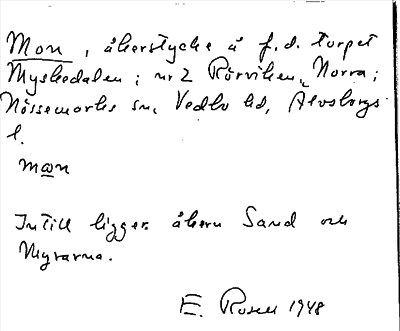 Mon, åkerstycke å f.d. torpet
Myskedalen; nr 2 Rörviken, Norra;
Nössemarks sn, Vedbo hd, Älvsborgs
l.
mɷn
Intill ligger åkern Sand och
Myrarna.
E. Rosell 1948